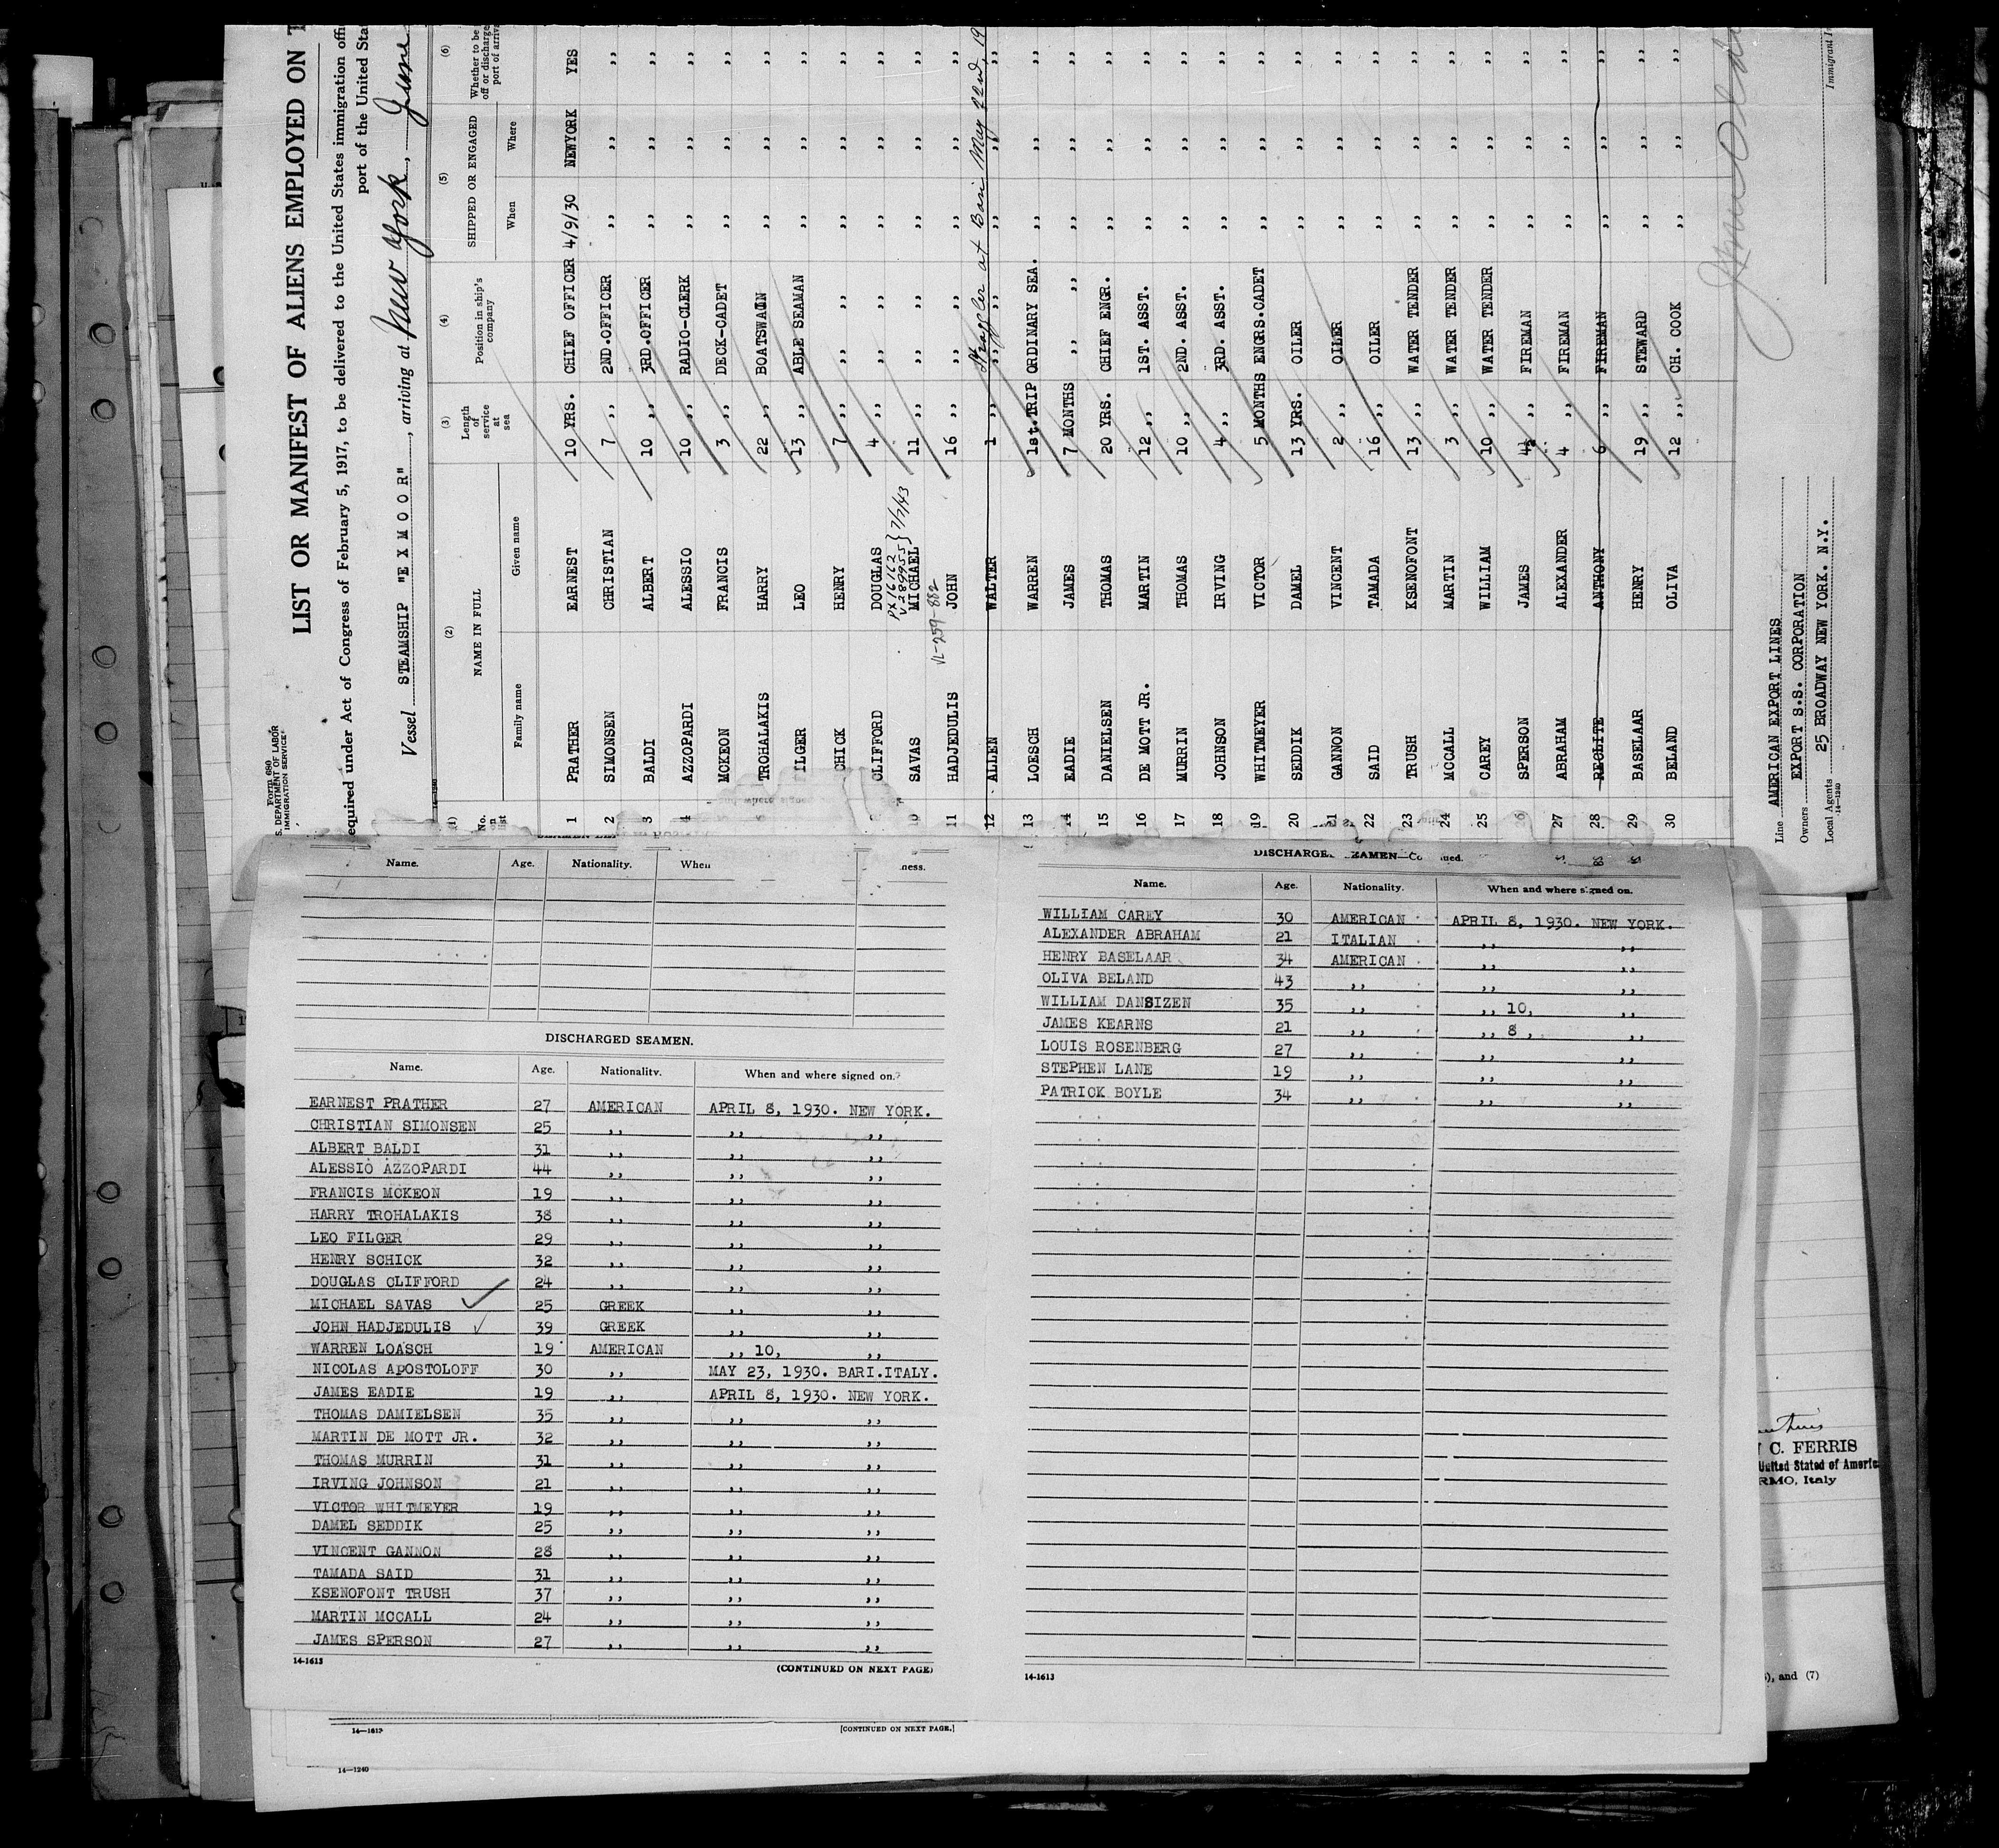 Form 680
S. DEPARTMENT OF LABOR
IMMIGRATION SERVICE
LIST OR MANIFEST OF ALIENS EMPLOYED ON T
equired under Act of Congress of February 5, 1917, to be delivered to the United States immigration offi
port of the United Sta
Vessel STEAMSHIP "E X M O O R", arriving at New York, June
(1) (2) (3) (4) (5) (6)
No. on list NAME IN FULL Length of service at sea Position in ship's company SHIPPED OR ENGAGED Whether to be off or discharge port of arriv
Family name Given name When Where
1 PRATHER EARNEST 10 YRS. CHIEF OFFICER 4/9/30 NEWYORK YES
2 SIMONSEN CHRISTIAN 7 ,, 2ND.OFFICER ,, ,, ,,
3 BALDI ALBERT 10 ,, 3RD.OFFICER ,, ,, ,,
4 AZZOPARDI ALESSIO 10 ,, RADIO-CLERK ,, ,, ,,
MCKEON FRANCIS 3 ,, DECK-CADET ,, ,, ,,
TROHALAKIS HARRY 22 ,, BOATSWAIN ,, ,, ,,
ILGER LEO 13 ,, ABLE SEAMAN ,, ,, ,,
CHICK HENRY 7 ,, ,, ,, ,, ,,
CLIFFORD DOUGLAS 4 ,, ,, ,, ,, ,,
PX16162
V-289955 } 7/7/43
10 SAVAS MICHAEL 11 ,, ,, ,, ,, ,,
VL-259-882
11 HADJEDULIS JOHN 16 ,, ,, ,, ,, ,,
Straggler at Bari May 22nd, 19
12 ALLEN WALTER 1 ,, ,, ,, ,, ,,
13 LOESCH WARREN 1st.TRIP ORDINARY SEA. ,, ,, ,,
14 EADIE JAMES 7 MONTHS ,, ,, ,, ,, ,,
15 DANIELSEN THOMAS 20 YRS. CHIEF ENGR. ,, ,, ,,
16 DE MOTT JR. MARTIN 12 ,, 1ST. ASST. ,, ,, ,,
17 MURRIN THOMAS 10 ,, 2ND. ASST. ,, ,, ,,
18 JOHNSON IRVING 4 ,, 3RD. ASST. ,, ,, ,,
19 WHITMEYER VICTOR 5 MONTHS ENGRS.CADET ,, ,, ,,
20 SEDDIK DAMEL 13 YRS. OILER ,, ,, ,,
21 GANNON VINCENT 2 ,, OILER ,, ,, ,,
22 SAID TAMADA 16 ,, OILER ,, ,, ,,
23 TRUSH KSENOFONT 13 ,, WATER TENDER ,, ,, ,,
24 MCCALL MARTIN 3 ,, WATER TENDER ,, ,, ,,
25 CAREY WILLIAM 10 ,, WATER TENDER ,, ,, ,,
26 SPERSON JAMES 4½ ,, FIREMAN ,, ,, ,,
27 ABRAHAM ALEXANDER 4 ,, FIREMAN ,, ,, ,,
28 REGLITE ANTHONY 6 ,, FIREMAN ,, ,, ,,
29 BASELAAR HENRY 19 ,, STEWARD ,, ,, ,,
30 BELAND OLIVA 12 ,, CH. COOK ,, ,, ,,
Line AMERICAN EXPORT LINES
Owners EXPORT S.S. CORPORATION
Local Agents 25 BROADWAY NEW YORK. N.Y.
14-1240
Immigrant I
Name. Age. Nationality. When ness.
DISCHARGED SEAMEN.
Name. Age. Nationality. When and where signed on.
EARNEST PRATHER 27 AMERICAN APRIL 8, 1930. NEW YORK.
CHRISTIAN SIMONSEN 25 ,, ,, ,,
ALBERT BALDI 31 ,, ,, ,,
ALESSIO AZZOPARDI 44 ,, ,, ,,
FRANCIS MCKEON 19 ,, ,, ,,
HARRY TROHALAKIS 38 ,, ,, ,,
LEO FILGER 29 ,, ,, ,,
HENRY SCHICK 32 ,, ,, ,,
DOUGLAS CLIFFORD 24 ,, ,, ,,
MICHAEL SAVAS 25 GREEK ,, ,,
JOHN HADJEDULIS 39 GREEK ,, ,,
WARREN LOASCH 19 AMERICAN ,, 10, ,,
NICOLAS APOSTOLOFF 30 ,, MAY 23, 1930. BARI.ITALY.
JAMES EADIE 19 ,, APRIL 8, 1930. NEW YORK.
THOMAS DAMIELSEN 35 ,, ,, ,,
MARTIN DE MOTT JR. 32 ,, ,, ,,
THOMAS MURRIN 31 ,, ,, ,,
IRVING JOHNSON 21 ,, ,, ,,
VICTOR WHITMEYER 19 ,, ,, ,,
DAMEL SEDDIK 25 ,, ,, ,,
VINCENT GANNON 28 ,, ,, ,,
TAMADA SAID 31 ,, ,, ,,
KSENOFONT TRUSH 37 ,, ,, ,,
MARTIN MCCALL 24 ,, ,, ,,
JAMES SPERSON 27 ,, ,, ,,
14-1613 (CONTINUED ON NEXT PAGE)
DISCHARGED SEAMEN—Continued.
Name. Age. Nationality. When and where signed on.
WILLIAM CAREY 30 AMERICAN APRIL 8, 1930. NEW YORK.
ALEXANDER ABRAHAM 21 ITALIAN ,, ,,
HENRY BASELAAR 34 AMERICAN ,, ,,
OLIVA BELAND 43 ,, ,, ,,
WILLIAM DANSIZEN 35 ,, ,, 10, ,,
JAMES KEARNS 21 ,, ,, 8, ,,
LOUIS ROSENBERG 27 ,, ,, ,,
STEPHEN LANE 19 ,, ,, ,,
PATRICK BOYLE 34 ,, ,, ,,
14-1613
14—1613 [CONTINUED ON NEXT PAGE.]
14—1240
C. FERRIS
United Stated of Americ
RMO, Italy
), and (7)